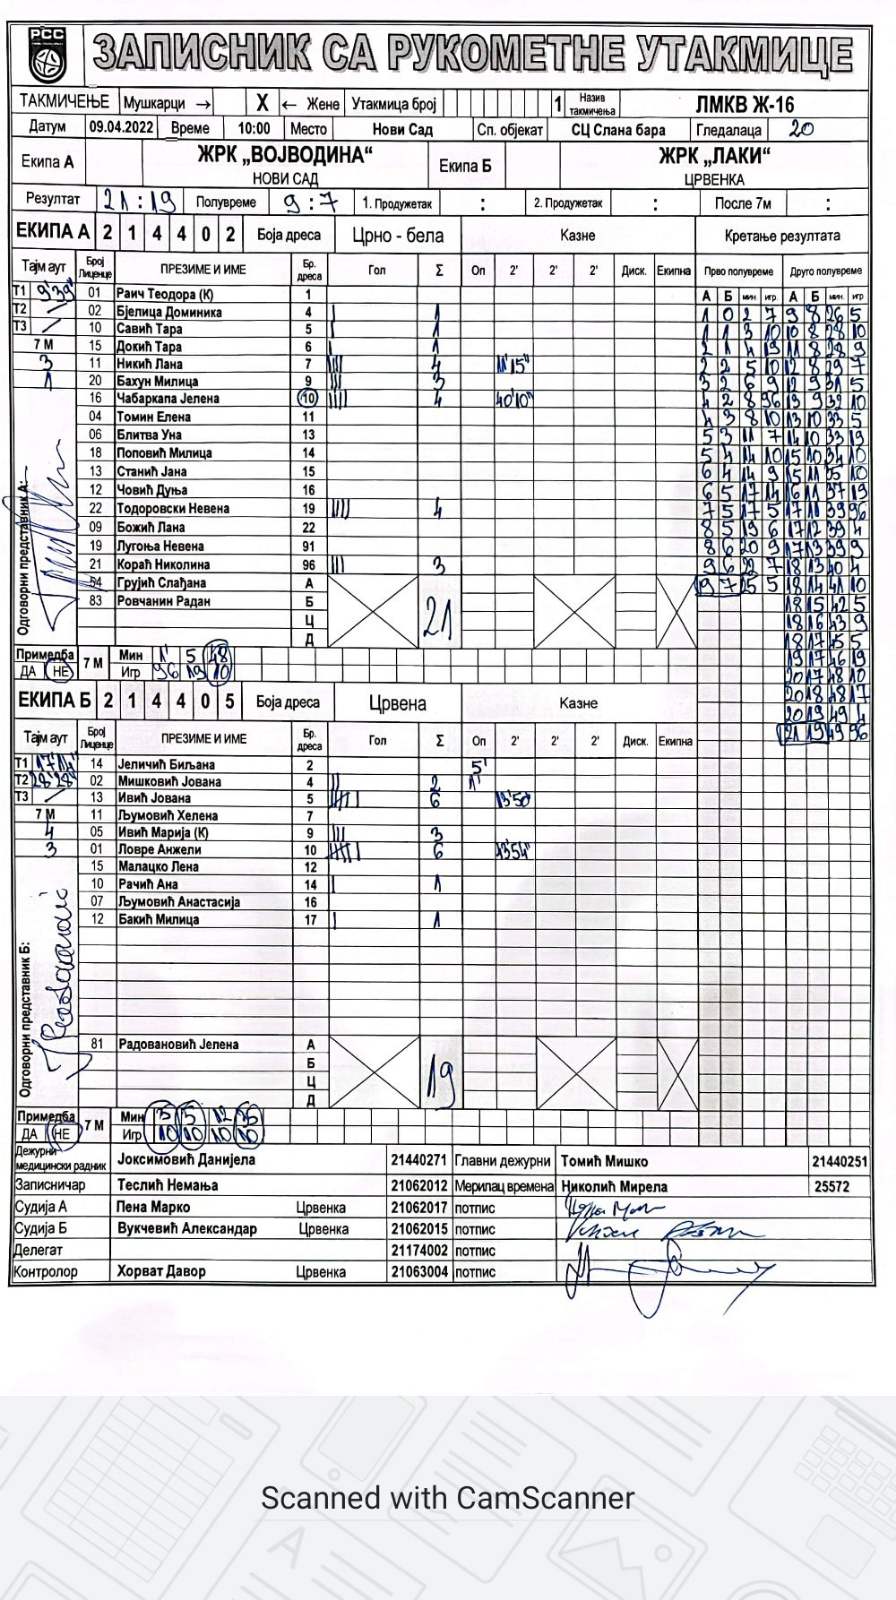 РСС
ЗАПИСНИК СА РУКОМЕТНЕ УТАКМИЦЕ
ТАКМИЧЕЊЕ Мушкарци → X ← Жене Утакмица број 1 Назив такмичења ЛМКВ Ж-16
Датум 09.04.2022 Време 10:00 Место Нови Сад Сп. објекат СЦ Слана бара Гледалаца 20
Екипа А ЖРК „ВОЈВОДИНА“ Екипа Б ЖРК „ЛАКИ“
НОВИ САД ЦРВЕНКА
Резултат 21:19 Полувреме 9:7 1. Продужетак : 2. Продужетак : После 7м :
ЕКИПА А 2 1 4 4 0 2 Боја дреса Црно - бела Казне Кретање резултата
Тајм аут Број Лиценце ПРЕЗИМЕ И ИМЕ Бр. дреса Гол Σ Оп 2' 2' 2' Диск. Екипна Прво полувреме Друго полувреме
А Б мин игр А Б мин игр
Т1 9'39" 01 Раич Теодора (К) 1
Т2 02 Бјелица Доминика 4 1
Т3 10 Савић Тара 5 1
7 М 15 Докић Тара 6 1
3 11 Никић Лана 7 4 11'15"
1 20 Бахун Милица 9 3
16 Чабаркапа Јелена 10 4 40'10"
04 Томин Елена 11
06 Блитва Уна 13
18 Поповић Милица 14
13 Станић Јана 15
12 Човић Дуња 16
22 Тодоровски Невена 19 4
09 Божић Лана 22
19 Лугоња Невена 91
21 Кораћ Николина 96 3
54 Грујић Слађана А
83 Ровчанин Радан Б 21
Ц
Д
Одговорни представник А:
Примедба 7 М Мин 1' 5 48
ДА НЕ Игр 96 19 10
1 0 2 7 9 8 26 5
1 1 3 10 10 8 28 10
2 1 4 19 11 8 28 9
2 2 5 10 12 8 29 7
3 2 6 9 12 9 31 5
4 2 8 96 13 9 32 10
4 3 8 10 13 10 33 5
5 3 11 7 14 10 33 19
5 4 14 10 15 10 34 10
6 4 14 9 15 11 35 10
6 5 17 14 16 11 37 19
7 5 17 5 17 11 39 96
8 5 19 6 17 12 39 4
8 6 20 9 17 13 39 9
9 6 22 7 18 13 40 4
9 7 25 5 18 14 41 10
18 15 42 5
18 16 43 9
18 17 45 5
19 17 46 19
20 17 48 10
20 18 48 17
20 19 49 4
21 19 49 96
ЕКИПА Б 2 1 4 4 0 5 Боја дреса Црвена Казне
Тајм аут Број Лиценце ПРЕЗИМЕ И ИМЕ Бр. дреса Гол Σ Оп 2' 2' 2' Диск. Екипна
Т1 17'14" 14 Јеличић Биљана 2 5'
Т2 28'28" 02 Мишковић Јована 4 2 11'
Т3 13 Ивић Јована 5 6 13'50"
7 М 11 Љумовић Хелена 7
4 05 Ивић Марија (К) 9 3
3 01 Ловре Анжели 10 6 43'54"
15 Малацко Лена 12
10 Рачић Ана 14 1
07 Љумовић Анастасија 16
12 Бакић Милица 17 1
81 Радовановић Јелена А
Б 19
Ц
Д
Одговорни представник Б:
Примедба 7 М Мин 3 5 12 35
ДА НЕ Игр 10 10 10 10
Дежурни медицински радник Јоксимовић Данијела 21440271 Главни дежурни Томић Мишко 21440251
Записничар Теслић Немања 21062012 Мерилац времена Николић Мирела 25572
Судија А Пена Марко Црвенка 21062017 потпис
Судија Б Вукчевић Александар Црвенка 21062015 потпис
Делегат 21174002 потпис
Контролор Хорват Давор Црвенка 21063004 потпис
Scanned with CamScanner